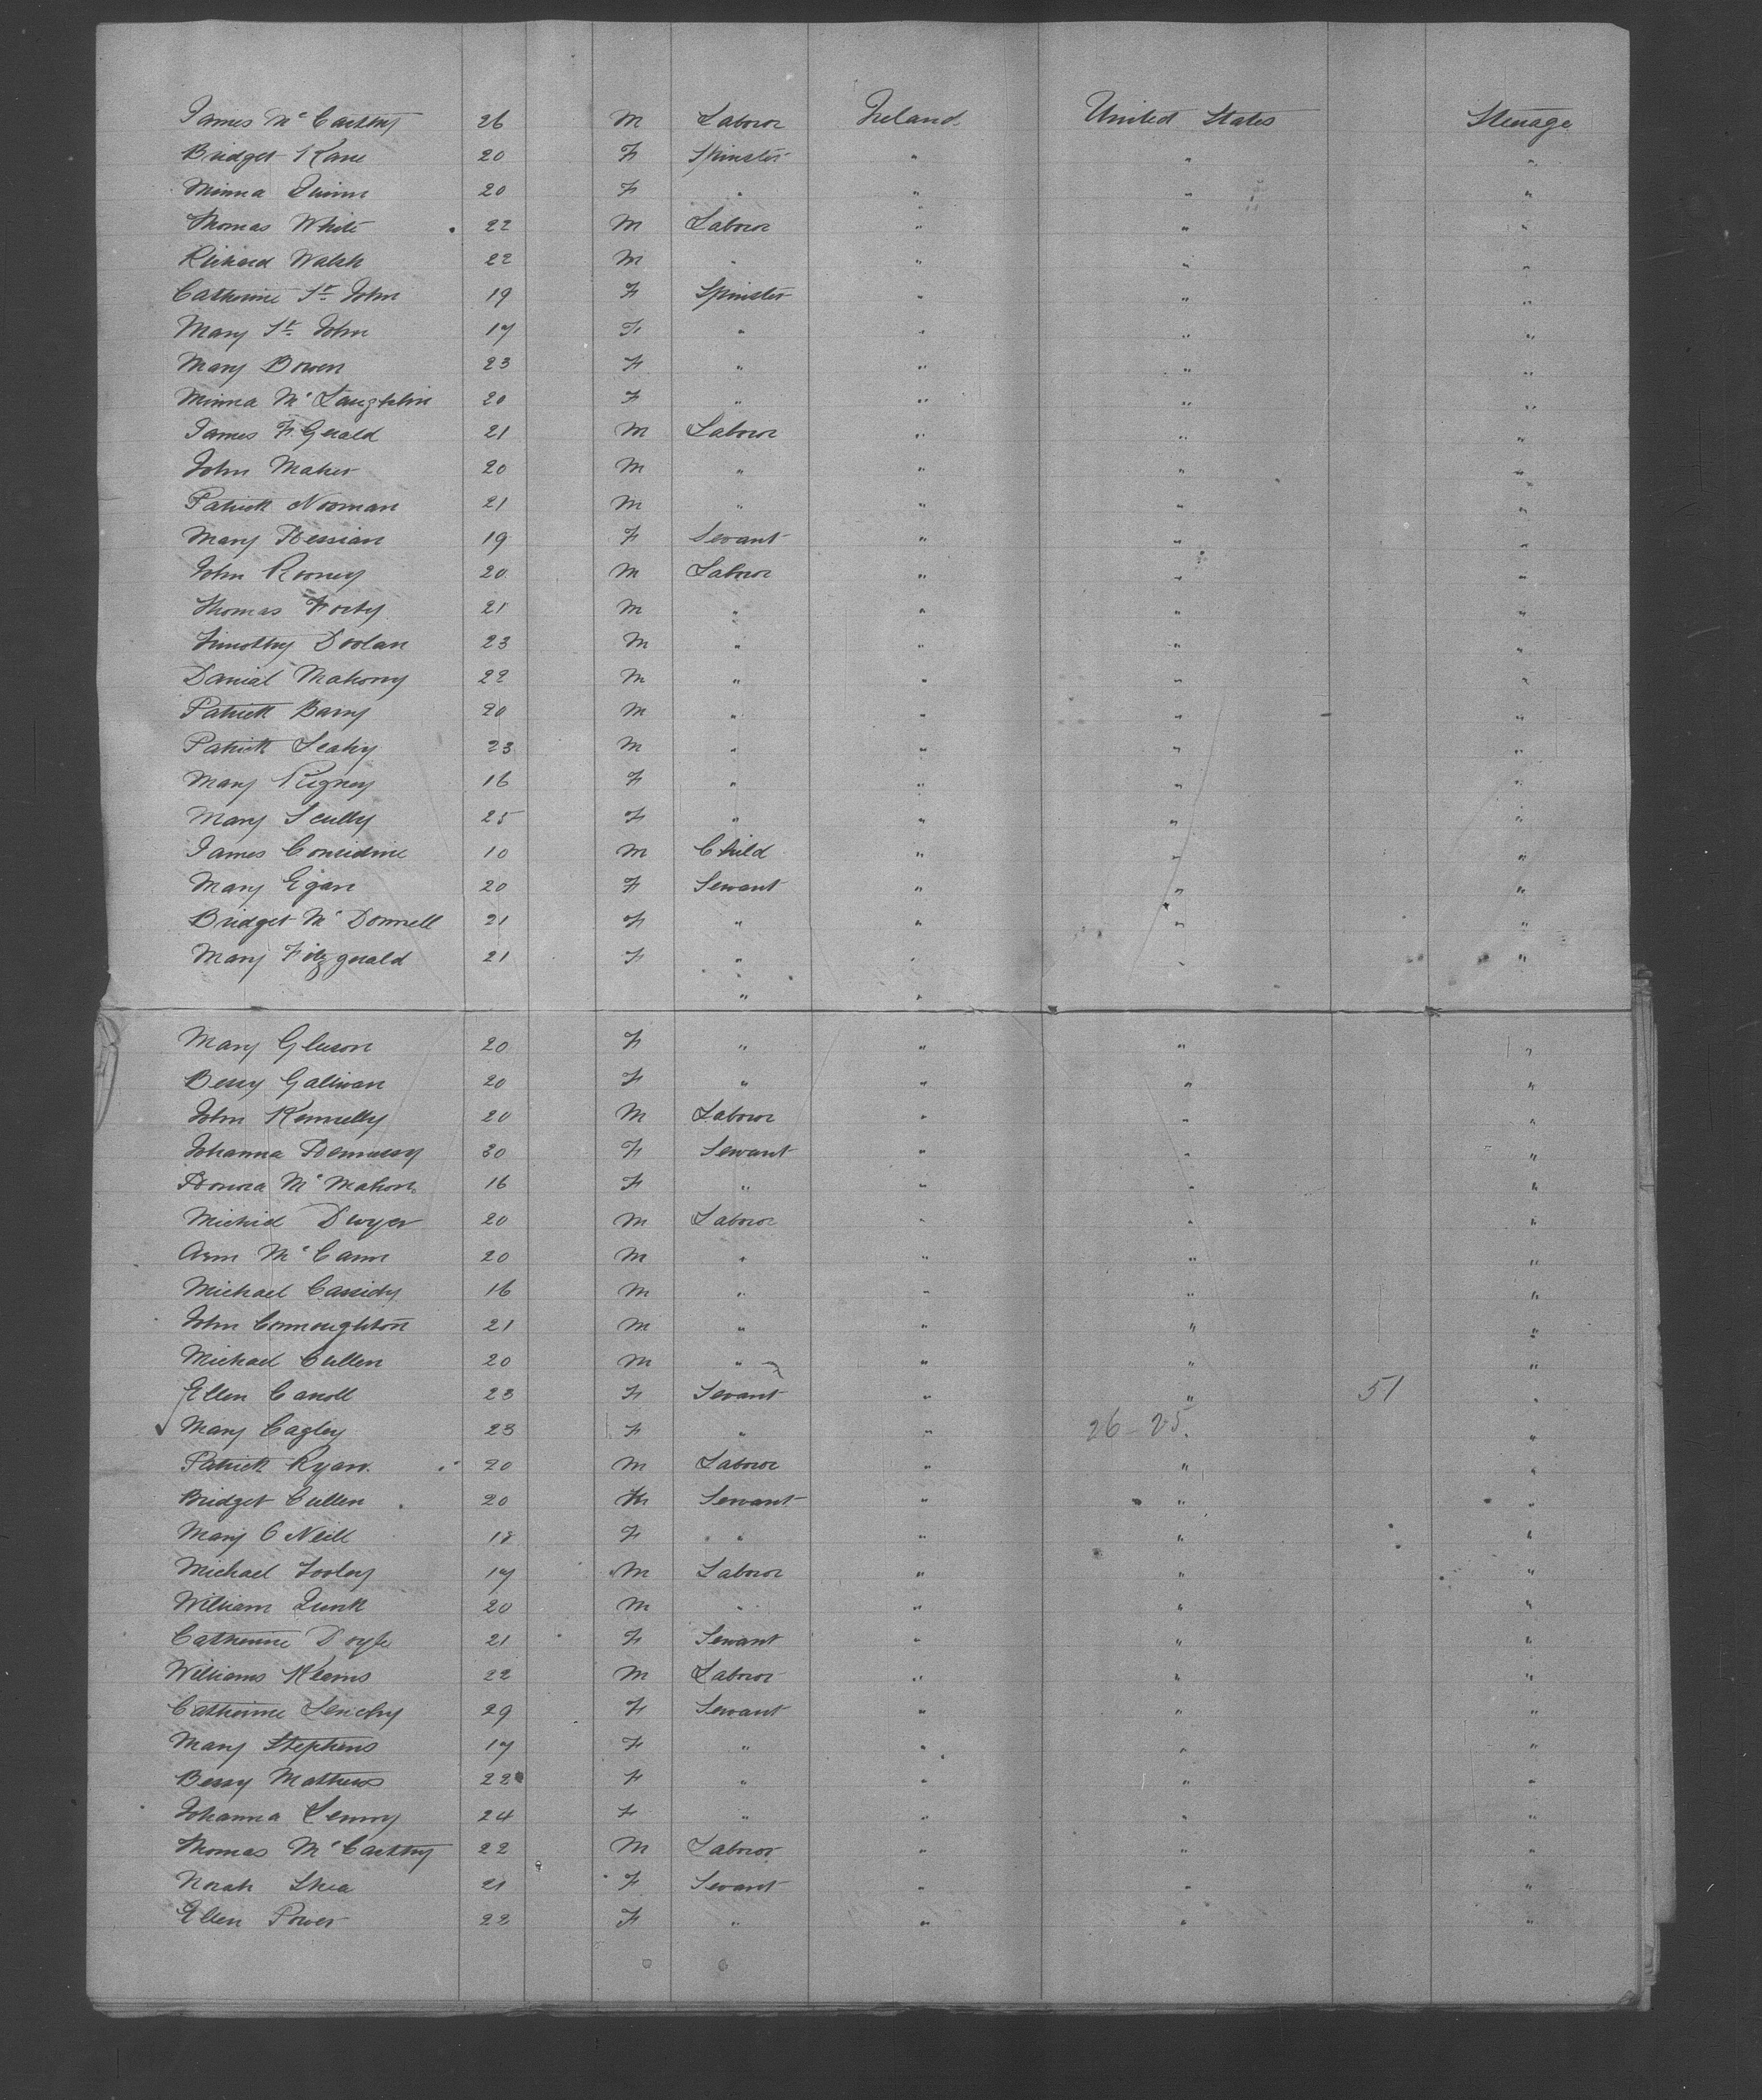 James McCarthy 26 M Laboror Ireland United States Steerage
Bridget Kane 20 F Spinster " " "
Minna Quinn 20 F " " " "
Thomas White 22 M Laboror " " "
Richard Walsh 22 M " " " "
Catherine St. John 19 F Spinster " " "
Mary St. John 17 F " " " "
Mary Bowen 23 F " " " "
Minna McLaughlin 20 F " " " "
James F. Gerald 21 M Laboror " " "
John Maher 20 M " " " "
Patrick Noonan 21 M " " " "
Mary Hessian 19 F Servant " " "
John Rooney 20 M Laboror " " "
Thomas 21 M " " " "
Timothy Doolan 23 M " " " "
Daniel Mahony 22 M " " " "
Patrick Barry 20 M " " " "
Patrick Leahy 23 M " " " "
Mary Rigney 16 F " " " "
Mary Scully 25 F " " " "
James Considine 10 M Child " " "
Mary Egan 20 F Servant " " "
Bridget McDonnell 21 F " " " "
Mary Fitzgerald 21 F " " " "
" "
Mary Gleeson 20 F " " " "
Bessy Galivan 20 F " " " "
John Kennelly 20 M Laboror " " "
Johanna Hennessy 30 F Servant " " "
Honora McMahon 16 F " " " "
Michael Dwyer 20 M Laboror " " "
Ann McCann 20 M " " " "
Michael Cassidy 16 M " " " "
John Connoughton 21 M " " " "
Michael Cullen 20 M " " " "
Ellen Caroll 23 F Servant " " 51 "
Mary Cagley 23 F " " 26-25 "
Patrick Ryan 20 M Laboror " " "
Bridget Cullen 20 Servant " " "
Mary O Neill 18 F " " " "
Michael Tooley 17 M Laboror " " "
William 20 M " " " "
Catherine Doyle 21 F Servant " " "
Williams Kearns 22 M Laboror " " "
Catherine 29 F Servant " " "
Mary Stephens 17 F " " " "
Bessy Mathews 22 F " " " "
Johanna 24 F " " " "
Thomas McCarthy 22 M Laboror " " "
Norah Shea 21 F Servant " " "
Ellen Power 22 F " " " "